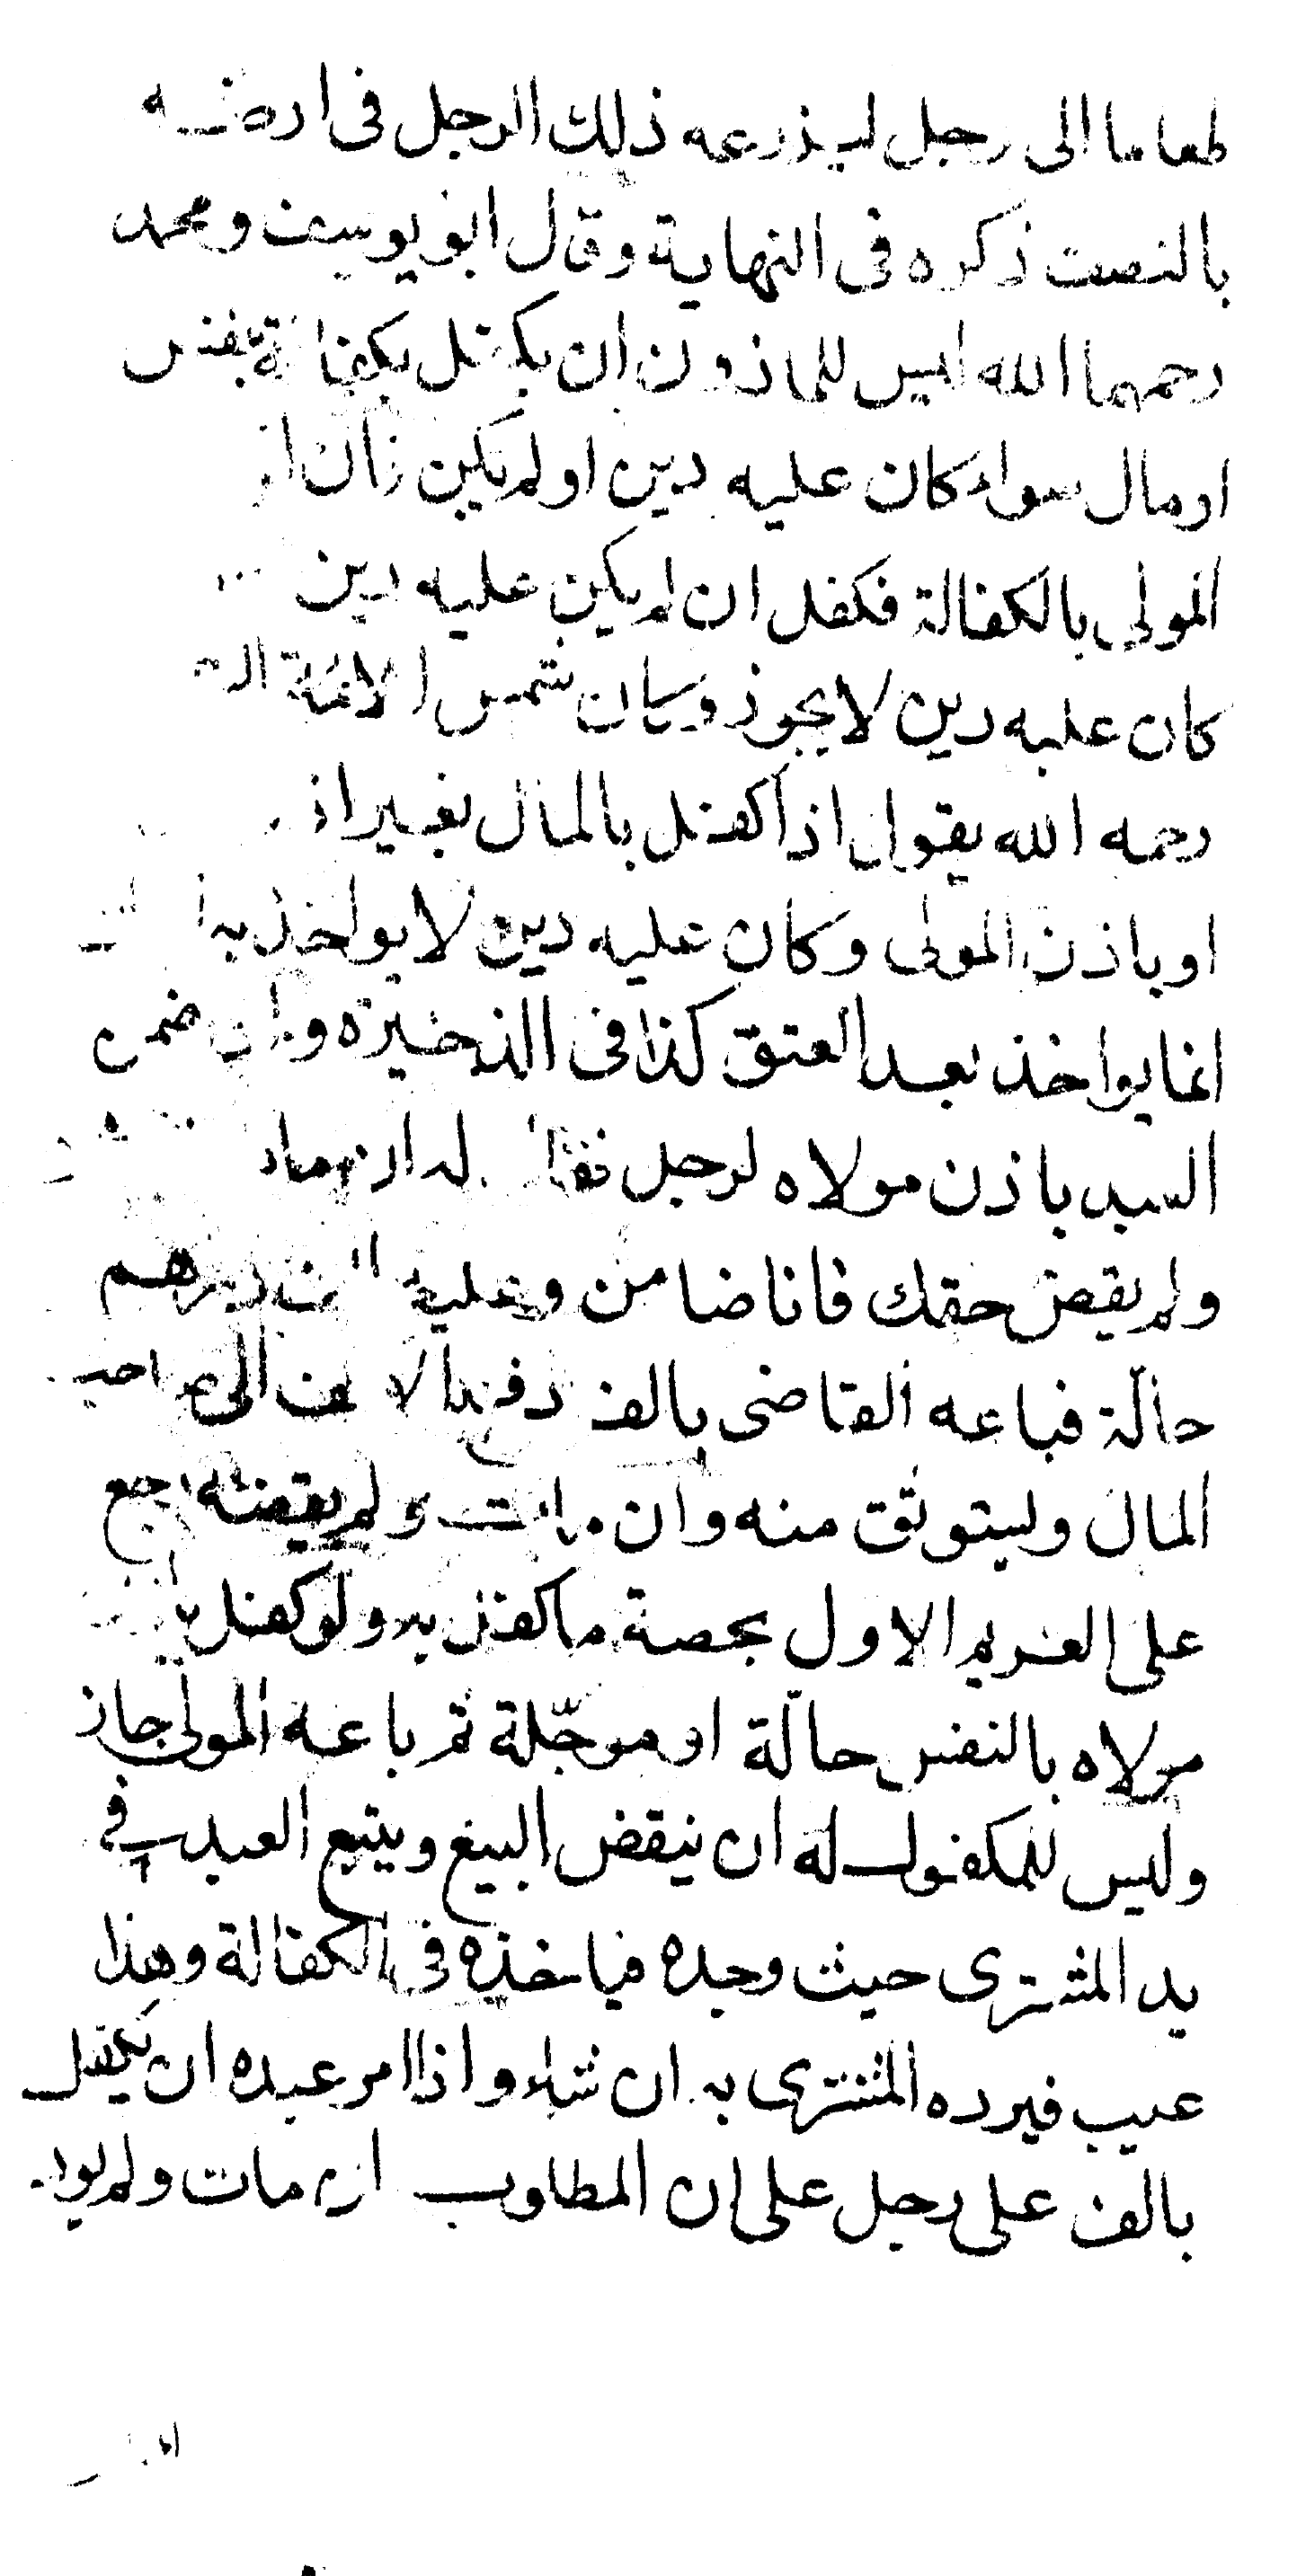 طعاما الى رجل ليذرعه ذلك الرجل فى ارضه
بالنصف ذكره فى النهاية وقال ابو يوسف ومحمد
رحمهما الله ليس للماذون ان يكفل بكفالة بنفس
او مال سواء كان عليه دين او لم يكن
المولى بالكفالة فكفل ان لم يكن عليه دين
كان عليه دين لا يجوز وكان شمس الائمة
رحمه الله يقول اذا كفل بالمال بغير اذن
او باذن المولى وكان عليه دين لا يواخذ به
انما يواخذ بعد العتق كذا فى الذخيرة وان ضمن
العبد باذن مولاه لرجل فقال له ان مات
ولم يقض حقك فانا ضامن وعليه الف درهم
حالّة فباعه القاضى بالف دفع الالف الى صاحب
المال ويستوثق منه وان مات ولم يقضه رجع
على الغريم الاول بحصة ما كفل به ولو كفل باذن
مولاه بالنفس حالّة او موجّلة ثم باعه المولى جاز
وليس للمكفول له ان ينقض البيع ويتبع العبد فى
يد المشترى حيث وجده فياخذه فى الكفالة وهذا
عيب فيرده المشترى به ان شاء واذا امر عبده ان يكفل
بالف على رجل على ان المطلوب ان مات ولم يود